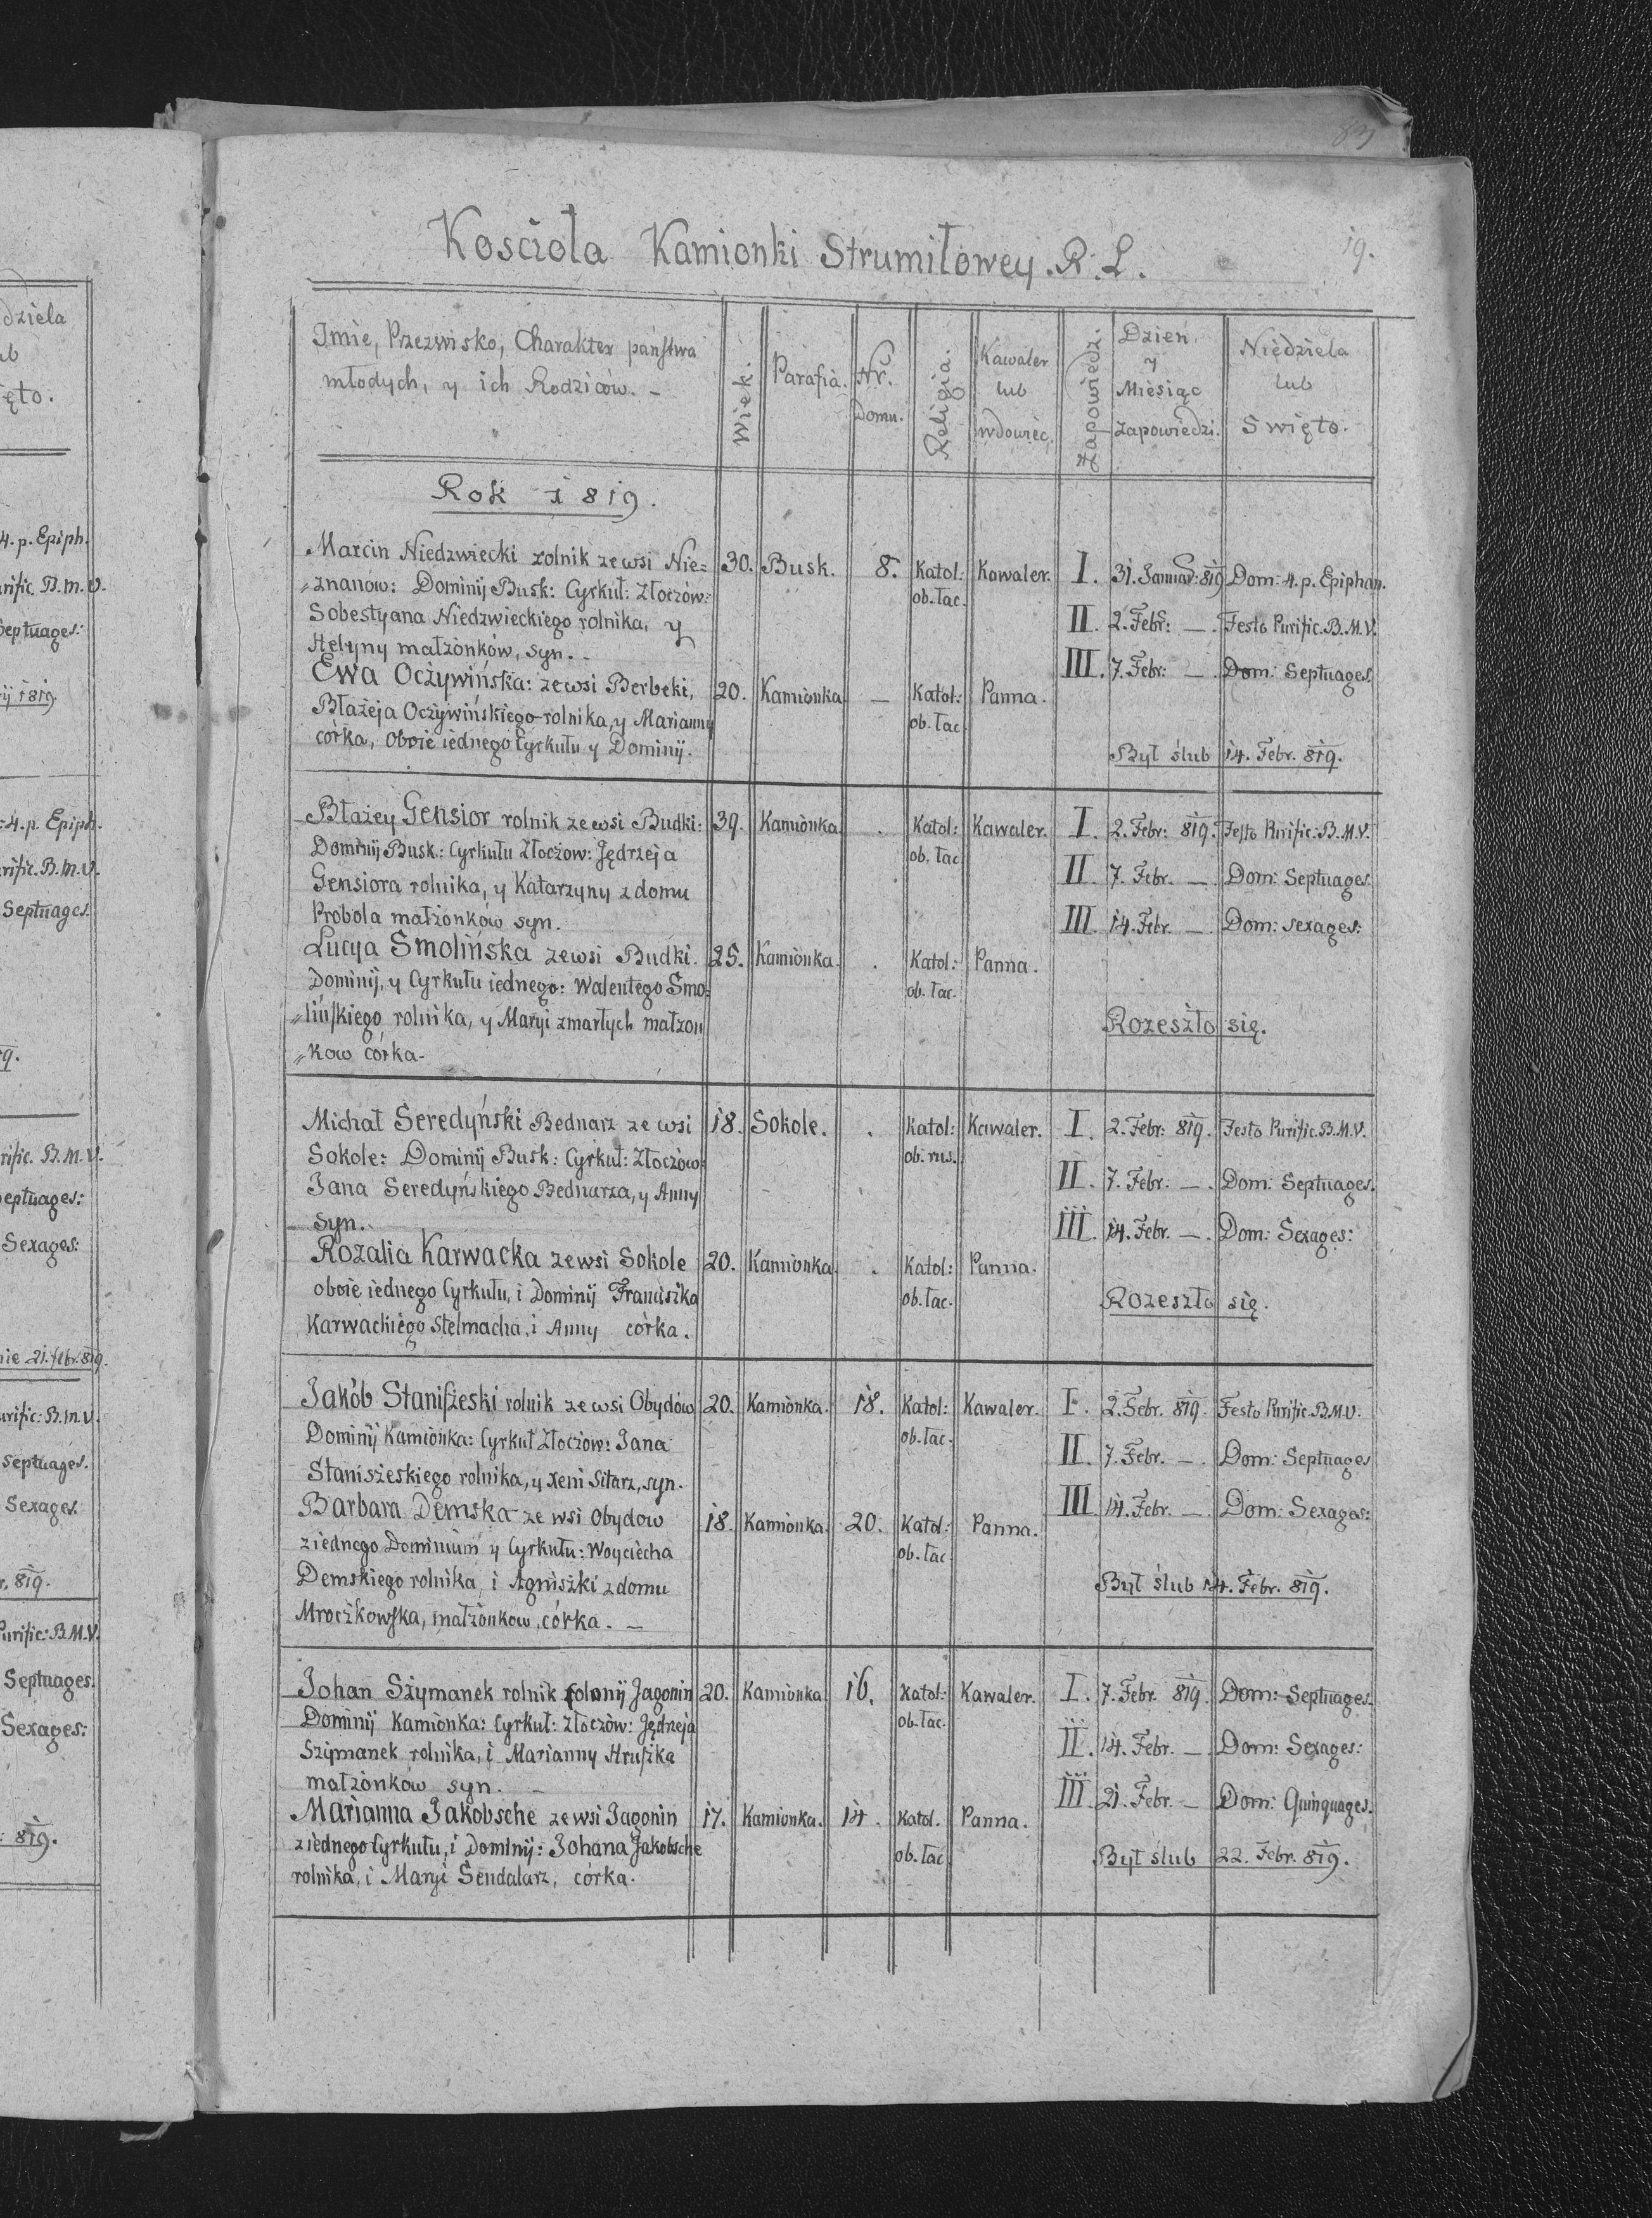 83
19.
Kościoła Kamionki Strumiłowey. R. L.
Imie, Przezwisko, Charakter państwa
młodych, y ich Rodziców. –
Wiek.
Parafia.
Nr.
Domu.
Religia.
Kawaler
lub
wdowiec.
Zapowiedz.
Dzien
y
Miesiąc
zapowiedzi.
Niedziela
lub
Swięto.
Rok 1819.
Marcin Niedzwiecki rolnik ze wsi Nie= 30. Busk. 8. Katol: Kawaler. I. 31. Januar: 819 Dom: 4. p. Epiphan.
„znanów: Dominij Busk: Cyrkuł: Złoczów: ob. łac.
Sobestyana Niedzwieckiego rolnika, y II. 2. Febr: —. Festo Purific. B.M.V.
Helyny małżonków, syn. – III. 7. Febr: —. Dom: Septuages.
Ewa Oczywińska: ze wsi Berbeki, 20. Kamionka — Katol: Panna.
Błażeja Oczywińskiego rolnika, y Marianny ob. łac.
córka, oboie iednego Cyrkułu y Dominij. Był ślub 14. Febr. 819.
Błażey Gensior rolnik ze wsi Budki: 39. Kamionka. . Katol: Kawaler. I. 2. Febr: 819. Festo Purific: B.M.V.
Dominij Busk: Cyrkułu Złoczow: Jędrzeja ob. łac
Gensiora rolnika, y Katarzyny z domu II. 7. Febr. —. Dom: Septuages.
Probola małżonków syn. III. 14. Febr. —. Dom: sexages:
Lucya Smolińska ze wsi Budki. 25. Kamionka. . Katol: Panna.
Dominij, y Cyrkułu iednego: Walentego Smo= ob. łac.
„lińskiego rolnika, y Maryi zmarłych małzon Rozeszło się.
„kow córka –
Michał Seredyński Bednarz ze wsi 18. Sokole. . Katol: Kawaler. I. 2. Febr: 819. Festo Purific. B.M.V.
Sokole: Dominij Busk: Cyrkuł: Złoczów: ob. rus.
Jana Seredyńskiego Bednarza, y Anny II. 7. Febr: —. Dom: Septuages.
syn. III. 14. Febr. —. Dom: Sexages:
Rozalia Karwacka ze wsi Sokole 20. Kamionka. . Katol: Panna.
oboie iednego Cyrkułu, i Dominij Franciszka ob. łac. Rozeszło się.
Karwackiego Stelmacha, i Anny córka.
Jakób Staniszeski rolnik ze wsi Obydów 20. Kamionka. 18. Katol: Kawaler. I. 2. Febr. 819. Festo Purific. B.M.V.
Dominij Kamionka: Cyrkuł Złoczow: Jana ob. łac.
Staniszeskiego rolnika, y Xeni Sitarz, syn. II. 7. Febr. —. Dom: Septuages
Barbara Demska ze wsi Obydow 18. Kamionka. 20. Katol: Panna. III 14. Febr. —. Dom: Sexages:
z iednego Dominium y Cyrkułu: Woyciecha ob. łac.
Demskiego rolnika, i Agniszki z domu Był ślub 14. Febr. 819.
Mroczkowska, małżonkow, córka. –
Johan Szymanek rolnik Kolonij Jagonin 20. Kamionka. 16. Katol: Kawaler. I. 7. Febr. 819. Dom: Septuages.
Dominij Kamionka: Cyrkuł: Złoczòw: Jędrzeja ob. łac.
Szymanek rolnika, i Marianny Hruszka II. 14. Febr. —. Dom: Sexages:
małżonków syn. – III. 21. Febr. — Dom: Quinquages.
Marianna Jakobsche ze wsi Jagonin 17. Kamionka. 14. Katol. Panna.
z iednego Cyrkułu, i Dominij: Johana Jakobsche ob. łac. Był ślub 22. Febr. 819.
rolnika, i Maryi Sendalarz, córka.
dziela
ęto.
4. p. Epiph.
rific. B.M.V.
Septuages:
ij 1819.
:4. p. Epiph.
rific. B.M.V.
Septuages.
rific. B.M.V.
eptuages:
Sexages:
nie 21. febr. 819.
urific: B.M.V.
Septuages.
Sexages.
r. 819.
Purific: B.M.V.
Septuages.
Sexages:
: 819.